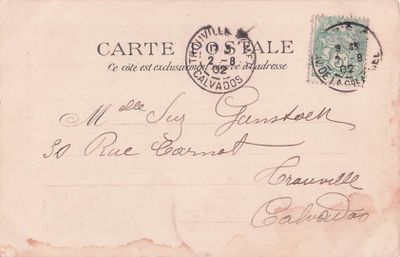 CARTE POSTALE
Ce côté est exclusivement réservé à l'adresse
TROUVILLE
2 -8
02
CALVADOS
2 -8
02
Melle Suz Gunstoett
50 Rue Carnot
Trouville
Calvados